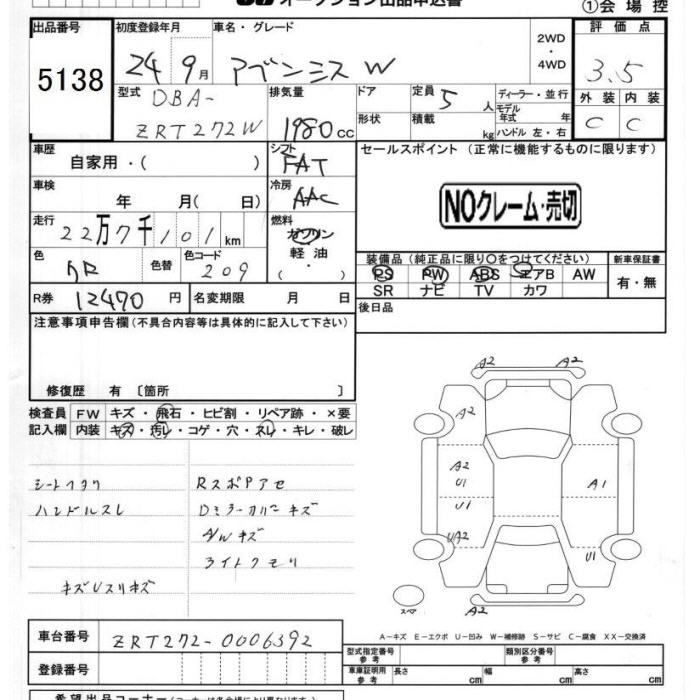 オークション出品申込書
①会場控
出品番号
5138
初度登録年月
24 9月
車名・グレード
アブンミスW
2WD
・
4WD
評価点
3.5
型式
DBA-
ZRT272W
排気量
1980cc
ドア
形状
定員 5人
積載 kg
ディーラー・並行
モデル年式 年
ハンドル 左・右
外装 内装
C C
車歴
自家用・( )
シフト
FAT
セールスポイント (正常に機能するものに限ります)
NOクレーム・売切
車検
年 月( 日)
冷房
AAC
走行
22万7千101km
燃料
ガソリン
軽油
・( )
色
色替
色コード
209
装備品(純正品に限り○をつけてください)
新車保証書
PS PW ABS エアB AW
SR ナビ TV カワ
有・無
R券 12470円
名変期限 月 日
後日品
注意事項申告欄(不具合内容等は具体的に記入して下さい)
修復歴 有 〔箇所 〕
検査員
記入欄
FW キズ・飛石・ヒビ割・リペア跡・×要
内装 キズ・汚レ・コゲ・穴・スレ・キレ・破レ
シートヘタリ
ハンドルスレ
キズUスリキズ
RスポPアセ
Dミラーカバーキズ
A/Wキズ
ライトクモリ
A2 A2
A2
A2
U1
U1
UA2
A1
U1
スペア
A2
A-キズ E-エクボ U-凹み W-補修跡 S-サビ C-腐食 XX-交換済
車台番号
ZRT272-0006392
登録番号
型式指定番号
参考
類別区分番号
参考
車庫証明用
参考
長さ cm
幅 cm
高さ cm
希望出品コーナー